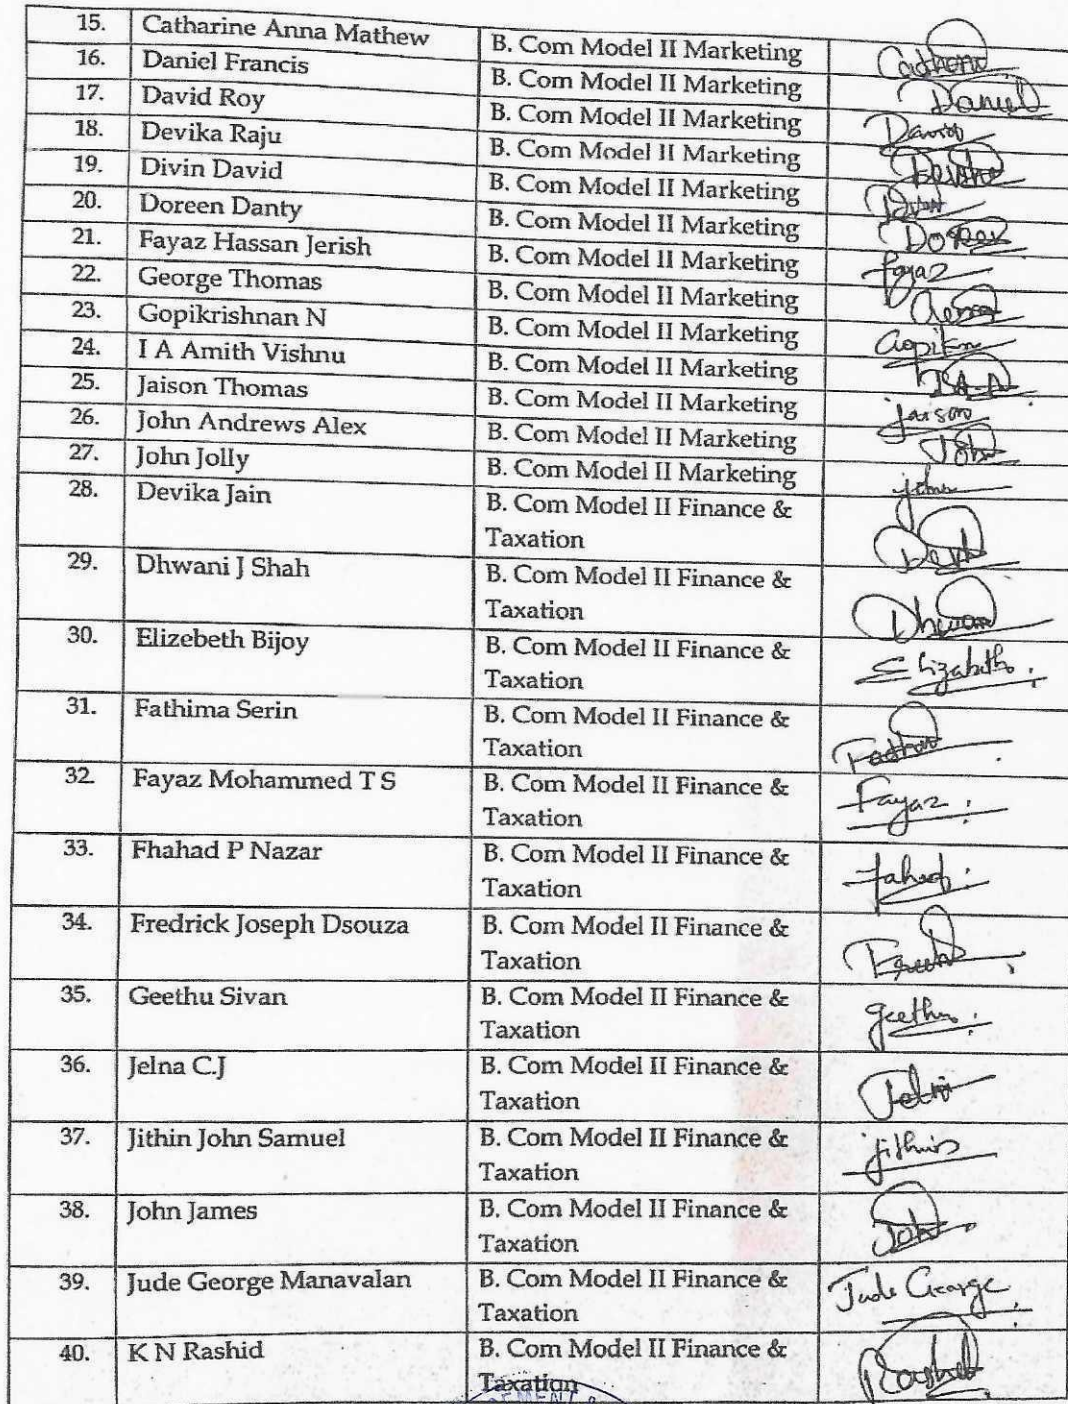 15. Catharine Anna Mathew B. Com Model II Marketing Catherine
16. Daniel Francis B. Com Model II Marketing Daniel
17. David Roy B. Com Model II Marketing David
18. Devika Raju B. Com Model II Marketing
19. Divin David B. Com Model II Marketing
20. Doreen Danty B. Com Model II Marketing Doreen
21. Fayaz Hassan Jerish B. Com Model II Marketing fayaz
22. George Thomas B. Com Model II Marketing
23. Gopikrishnan N B. Com Model II Marketing
24. I A Amith Vishnu B. Com Model II Marketing
25. Jaison Thomas B. Com Model II Marketing jaison
26. John Andrews Alex B. Com Model II Marketing John
27. John Jolly B. Com Model II Marketing john
28. Devika Jain B. Com Model II Finance &
Taxation
29. Dhwani J Shah B. Com Model II Finance &
Taxation Dhwani
30. Elizebeth Bijoy B. Com Model II Finance &
Taxation Elizabeth.
31. Fathima Serin B. Com Model II Finance &
Taxation
32. Fayaz Mohammed T S B. Com Model II Finance &
Taxation Fayaz
33. Fhahad P Nazar B. Com Model II Finance &
Taxation fahad
34. Fredrick Joseph Dsouza B. Com Model II Finance &
Taxation
35. Geethu Sivan B. Com Model II Finance &
Taxation geethu
36. Jelna C.J B. Com Model II Finance &
Taxation
37. Jithin John Samuel B. Com Model II Finance &
Taxation jithin
38. John James B. Com Model II Finance &
Taxation John
39. Jude George Manavalan B. Com Model II Finance &
Taxation Jude George
40. K N Rashid B. Com Model II Finance &
Taxation Rashid